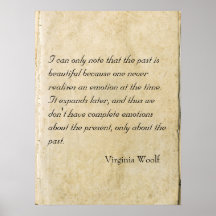 I can only note that the past is
beautiful because one never
realises an emotion at the time.
It expands later, and thus we
don't have complete emotions
about the present, only about the
past.
Virginia Woolf